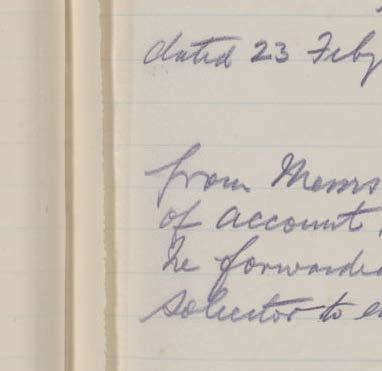 dated 23 Feby
from Messrs
of account
be forwarded
solicitor to